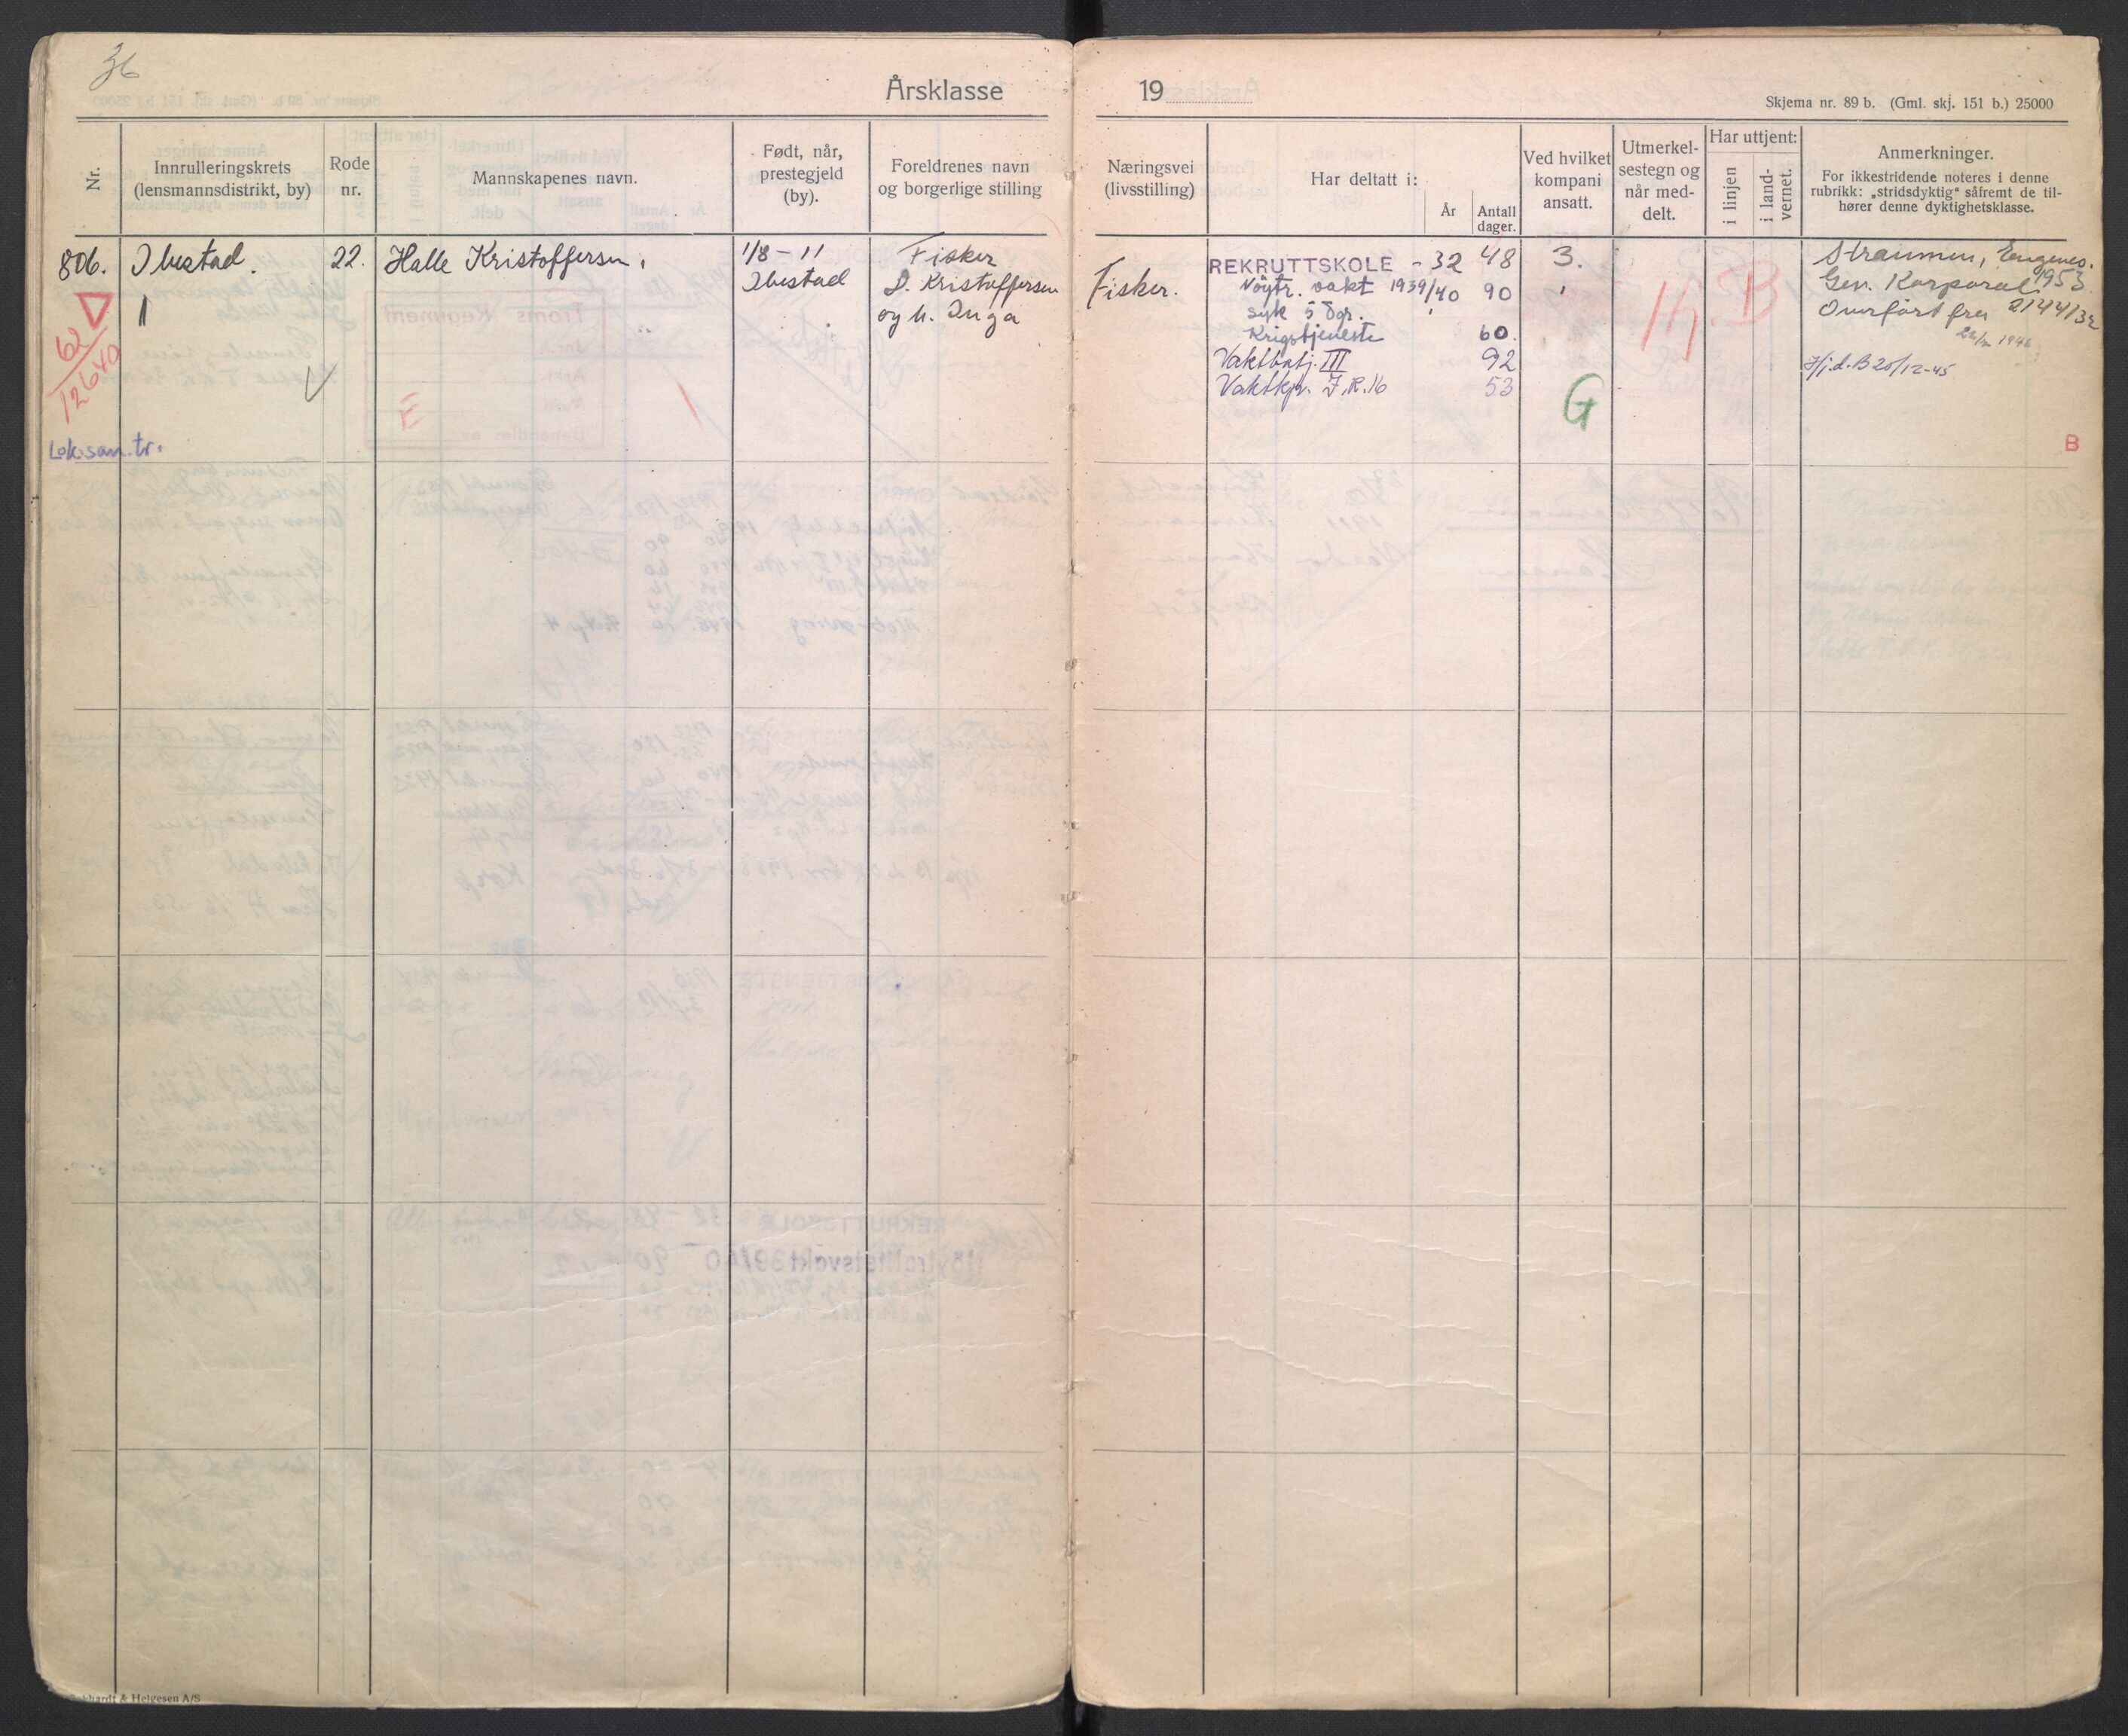 36
Årsklasse
19
Skjema nr. 89 b. (Gml. skj. 151 b.) 25000
Nr.
Innrulleringskrets
(lensmannsdistrikt, by)
Rode
nr.
Mannskapenes navn.
Født, når,
prestegjeld
(by).
Foreldrenes navn
og borgerlige stilling
Næringsvei
(livsstilling)
Har deltatt i:
År
Antall
dager.
Ved hvilket
kompani
ansatt.
Utmerkel-
sestegn og
når med-
delt.
Har uttjent:
i linjen
i land-
vernet.
Anmerkninger.
For ikkestridende noteres i denne
rubrikk: „stridsdyktig" såfremt de til-
hører denne dyktighetsklasse.
806.
Ibestad.
22.
Halle Kristoffersen.
1/8-11
Ibestad
Fisker
D. Kristoffersen
og h. Inga
Fisker.
REKRUTTSKOLE - 32 48
Nøytr. vakt 1939/40 90
syk 5 dgr.
Krigstjeneste 60.
Vaktbatj. III 92
Vaktkp. I.R.16 53
3.
G
B
Straumen, Engenes.
Gev. Korporal 1953
Overført fra 2144/32
1946
Hj.d.B 20/12-45
B
62
12640
E
Lok.san.tr.
& Helgesen A/S